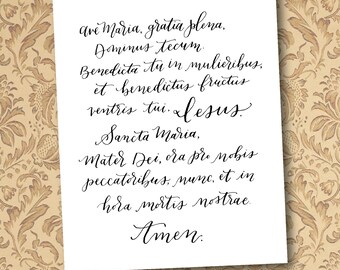 Ave Maria, gratia plena,
Dominus tecum.
Benedicta tu in mulieribus,
et benedictus fructus
ventris tui, Iesus.
Sancta Maria,
Mater Dei, ora pro nobis
peccatoribus, nunc, et in
hora mortis nostrae.
Amen.